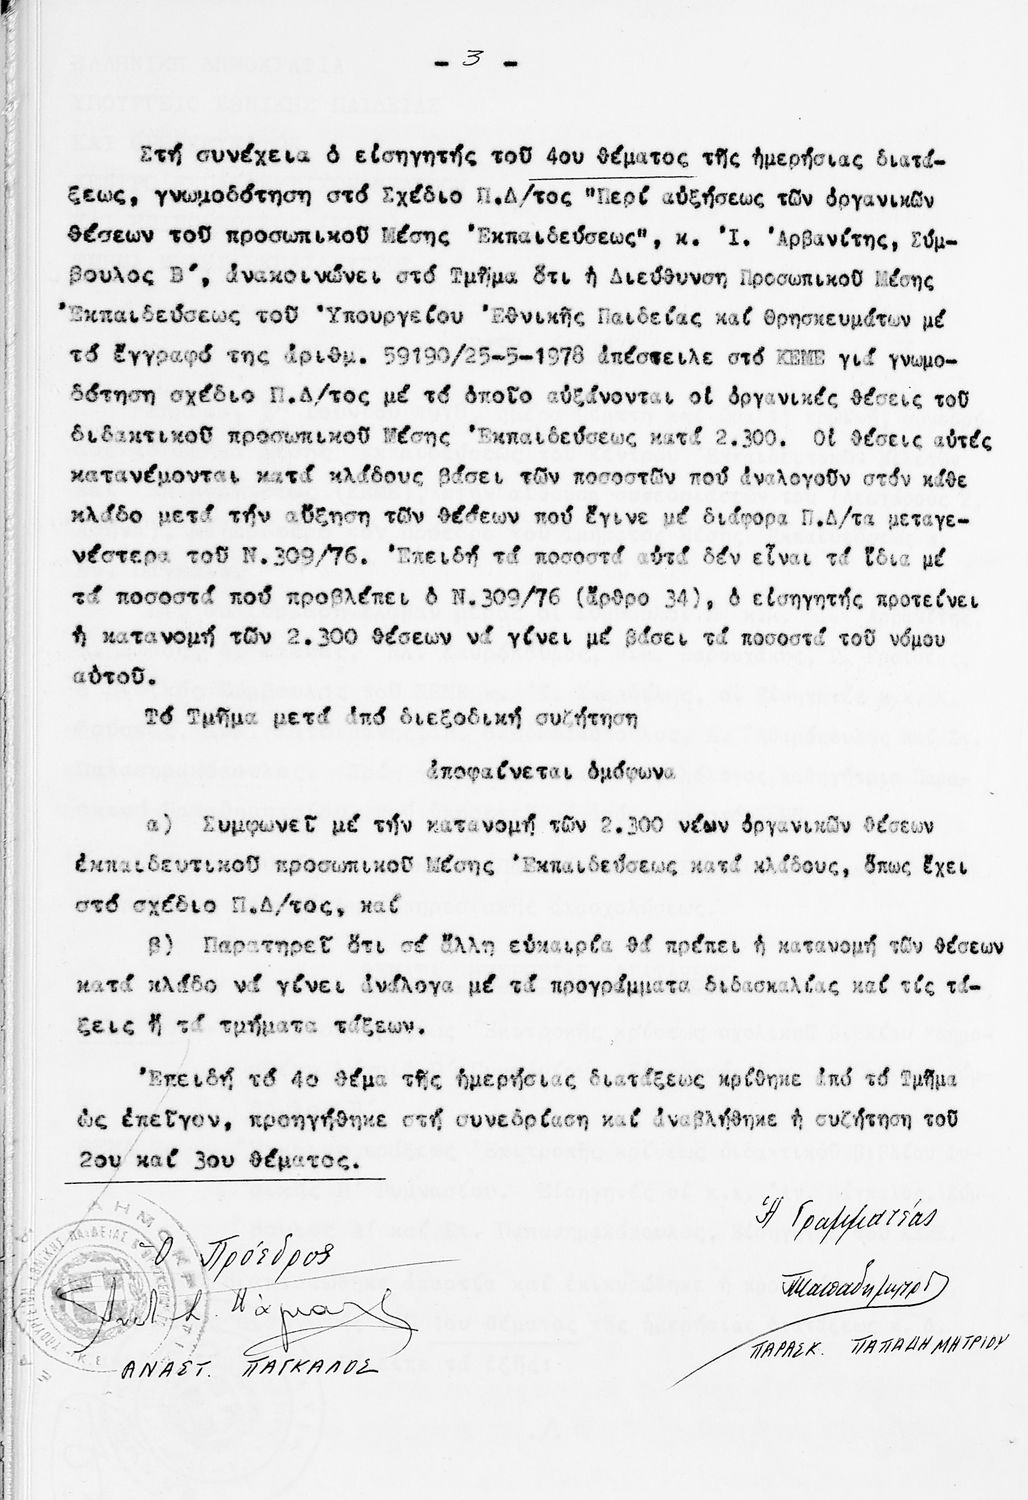 - 3 -
Στή συνέχεια ὁ εἰσηγητής τοῦ 4ου θέματος τῆς ἡμερήσιας διατά-
ξεως, γνωμοδότηση στό Σχέδιο Π.Δ/τος "Περί αὐξήσεως τῶν ὀργανικῶν
θέσεων τοῦ προσωπικοῦ Μέσης Ἐκπαιδεύσεως", κ. Ἰ. Ἀρβανίτης, Σύμ-
βουλος Β΄, ἀνακοινώνει στό Τμῆμα ὅτι ἡ Διεύθυνση Προσωπικοῦ Μέσης
Ἐκπαιδεύσεως τοῦ Ὑπουργείου Ἐθνικῆς Παιδείας καί Θρησκευμάτων μέ
τό ἔγγραφό της ἀριθμ. 59190/25-5-1978 ἀπέστειλε στό ΚΕΜΕ γιά γνωμο-
δότηση σχέδιο Π.Δ/τος μέ τό ὁποῖο αὐξάνονται οἱ ὀργανικές θέσεις τοῦ
διδακτικοῦ προσωπικοῦ Μέσης Ἐκπαιδεύσεως κατά 2.300. Οἱ θέσεις αὐτές
κατανέμονται κατά κλάδους βάσει τῶν ποσοστῶν πού ἀναλογοῦν στόν κάθε
κλάδο μετά τήν αὔξηση τῶν θέσεων πού ἔγινε μέ διάφορα Π.Δ/τα μεταγε-
νέστερα τοῦ Ν.309/76. Ἐπειδή τά ποσοστά αὐτά δέν εἶναι τά ἴδια μέ
τά ποσοστά πού προβλέπει ὁ Ν.309/76 (ἄρθρο 34), ὁ εἰσηγητής προτείνει
ἡ κατανομή τῶν 2.300 θέσεων νά γίνει μέ βάσει τά ποσοστά τοῦ νόμου
αὐτοῦ.
Τό Τμῆμα μετά ἀπό διεξοδική συζήτηση
ἀποφαίνεται ὁμόφωνα
α) Συμφωνεῖ μέ τήν κατανομή τῶν 2.300 νέων ὀργανικῶν θέσεων
ἐκπαιδευτικοῦ προσωπικοῦ Μέσης Ἐκπαιδεύσεως κατά κλάδους, ὅπως ἔχει
στό σχέδιο Π.Δ/τος, καί
β) Παρατηρεῖ ὅτι σέ ἄλλη εὐκαιρία θά πρέπει ἡ κατανομή τῶν θέσεων
κατά κλάδο νά γίνει ἀνάλογα μέ τά προγράμματα διδασκαλίας καί τίς τά-
ξεις ἤ τά τμήματα τάξεων.
Ἐπειδή τό 4ο θέμα τῆς ἡμερήσιας διατάξεως κρίθηκε ἀπό τό Τμῆμα
ὡς ἐπεῖγον, προηγήθηκε στή συνεδρίαση καί ἀναβλήθηκε ἡ συζήτηση τοῦ
2ου καί 3ου θέματος.
Ὁ Πρόεδρος
ΑΝΑΣΤ. ΠΑΓΚΑΛΟΣ
Ἡ Γραμματέας
Παπαδημητρ
ΠΑΡΑΣΚ. ΠΑΠΑΔΗΜΗΤΡΙΟΥ